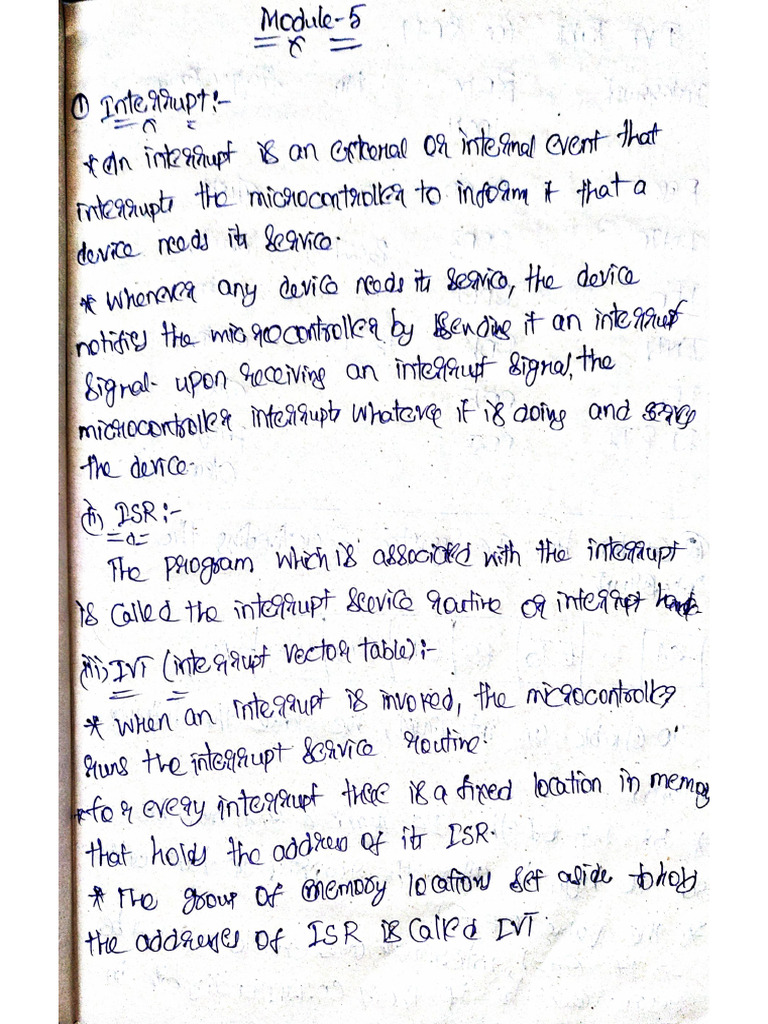 Module-5
① Interrupt:-
* An interrupt is an external or internal event that
interrupts the microcontroller to inform it that a
device needs its service.
* Whenever any device needs its service, the device
notifies the microcontroller by sending it an interrupt
signal. upon receiving an interrupt signal, the
microcontroller interrupts whatever it is doing and serves
the device.
(ii) ISR:-
The program which is associated with the interrupt
is called the interrupt service routine or interrupt
(iii) IVT (interrupt vector table):-
* When an interrupt is invoked, the microcontroller
runs the interrupt service routine.
* for every interrupt there is a fixed location in memory
that holds the address of its ISR.
* The group of memory location set aside to hold
the addresses of ISR is called IVT.